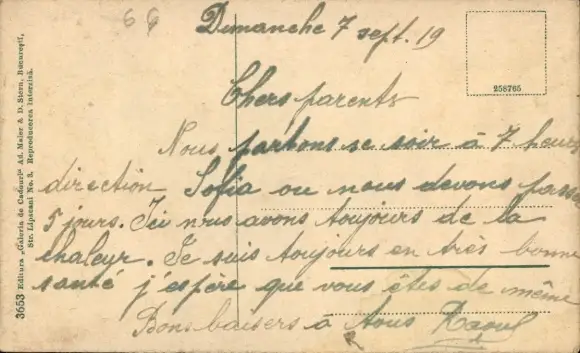 66
Dimanche 7 sept. 19
258765
Chers parents
Nous partons se soir à 7 heures
direction Sofia ou nous devons passer
5 jours. Ici nous avons toujours de la
chaleur. Je suis toujours en très bonne
santé j'espère que vous êtes de même
Bons baisers à tous Raoul
3653 Editura „Galeria de Cadouri" Ad. Maier & D. Stern, Bucureşti,
Str. Lipscani No. 3. Reproducerea interzisă.